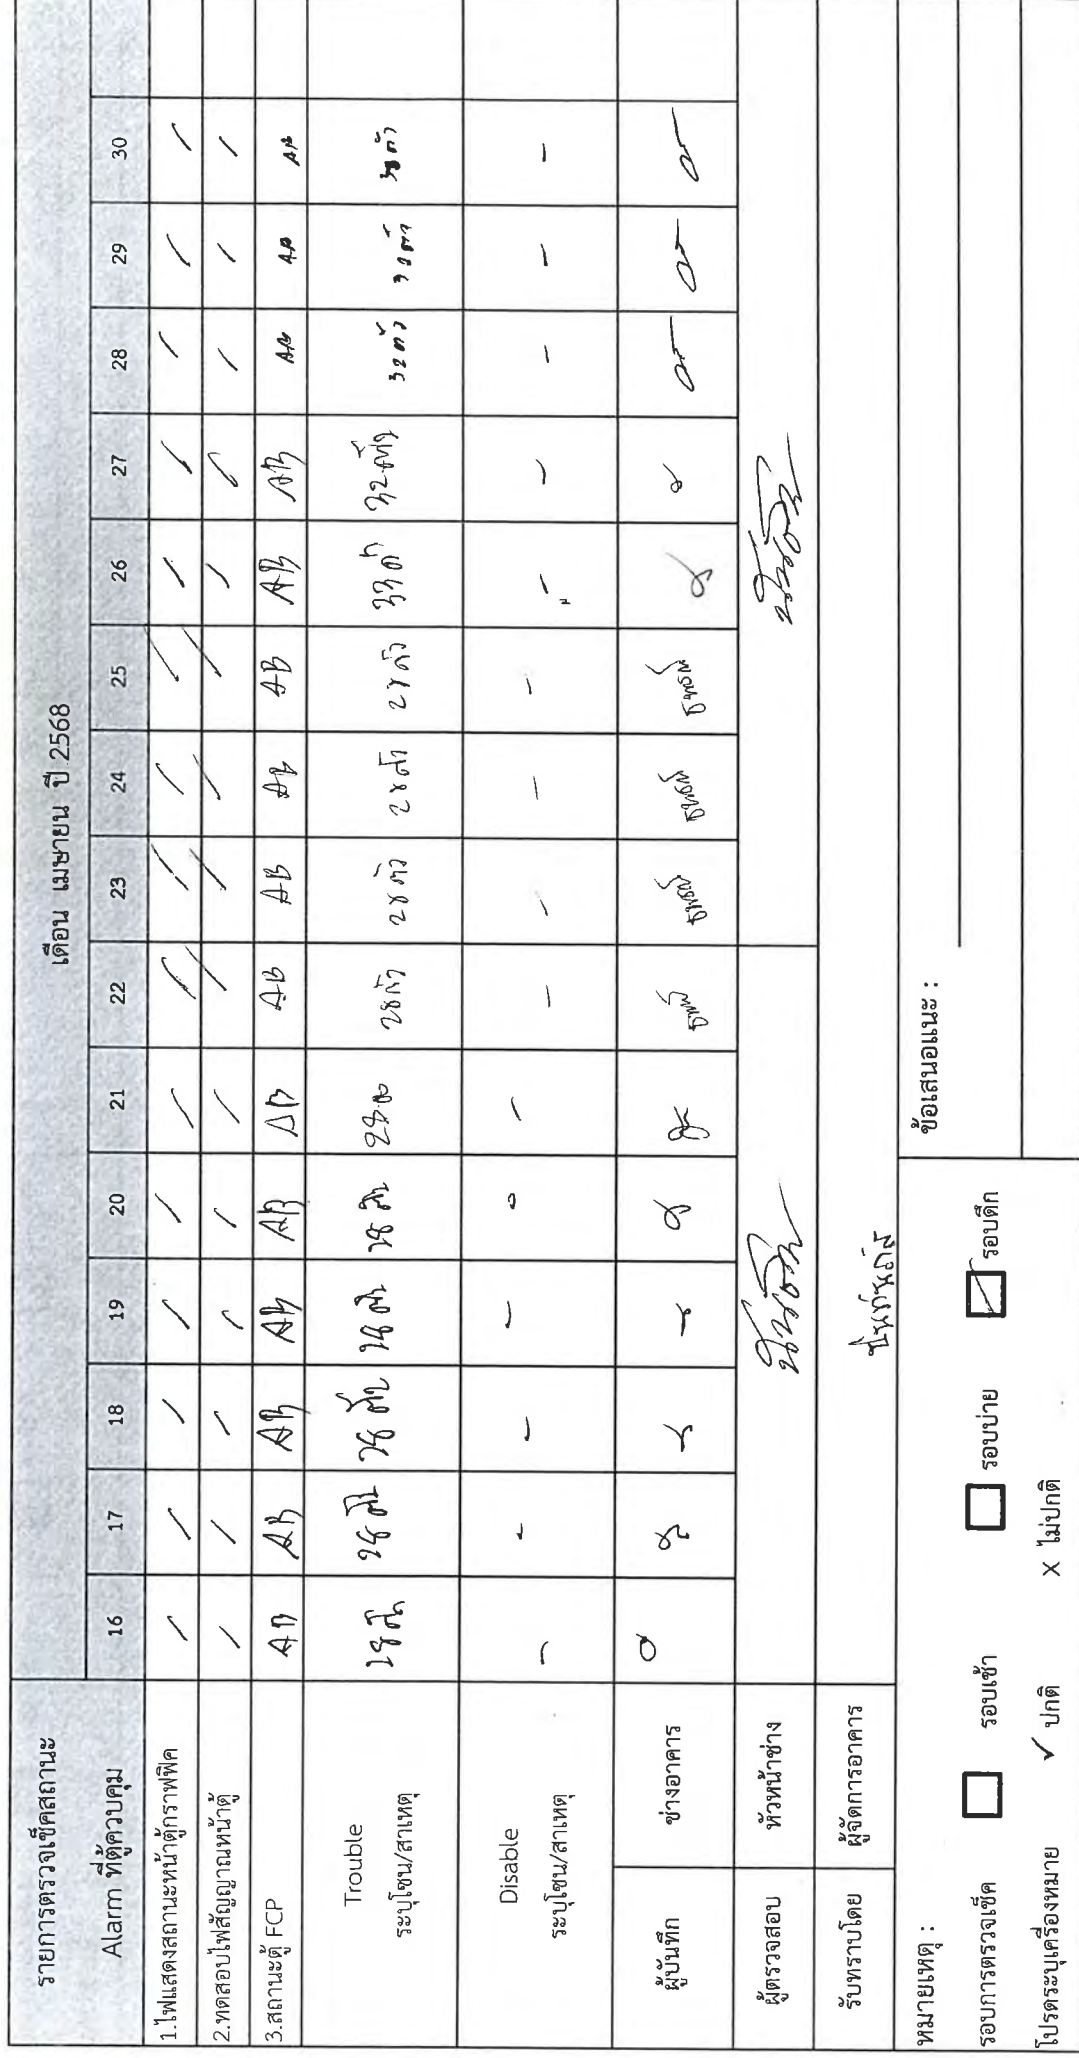 รายการตรวจเช็คสถานะ
Alarm ที่ตู้ควบคุม
เดือน เมษายน ปี 2568
16 17 18 19 20 21 22 23 24 25 26 27 28 29 30
1.ไฟแสดงสถานะหน้าตู้กราฟฟิค / / / / / / / / / / / / / / /
2.ทดสอบไฟสัญญาณหน้าตู้ / / / / / / / / / / / / / / /
3.สถานะตู้ FCP AB AB AB AB AB AB AB AB AB AB AB AB AB AB AB
Trouble
ระบุโซน/สาเหตุ
28 ตัว 28 ตัว 28 ตัว 28 ตัว 28 ตัว 28 28 ตัว 28 ตัว 28 ตัว 28 ตัว 33 ตัว 32 ตัว 32 ตัว 32 ตัว 32 ตัว
Disable
ระบุโซน/สาเหตุ
- - - - - - - - - - - - - - -
ผู้บันทึก ช่างอาคาร
ผู้ตรวจสอบ หัวหน้าช่าง
รับทราบโดย ผู้จัดการอาคาร
หมายเหตุ :
ข้อเสนอแนะ :
รอบการตรวจเช็ค รอบเช้า รอบบ่าย รอบดึก
โปรดระบุเครื่องหมาย ✓ ปกติ X ไม่ปกติ